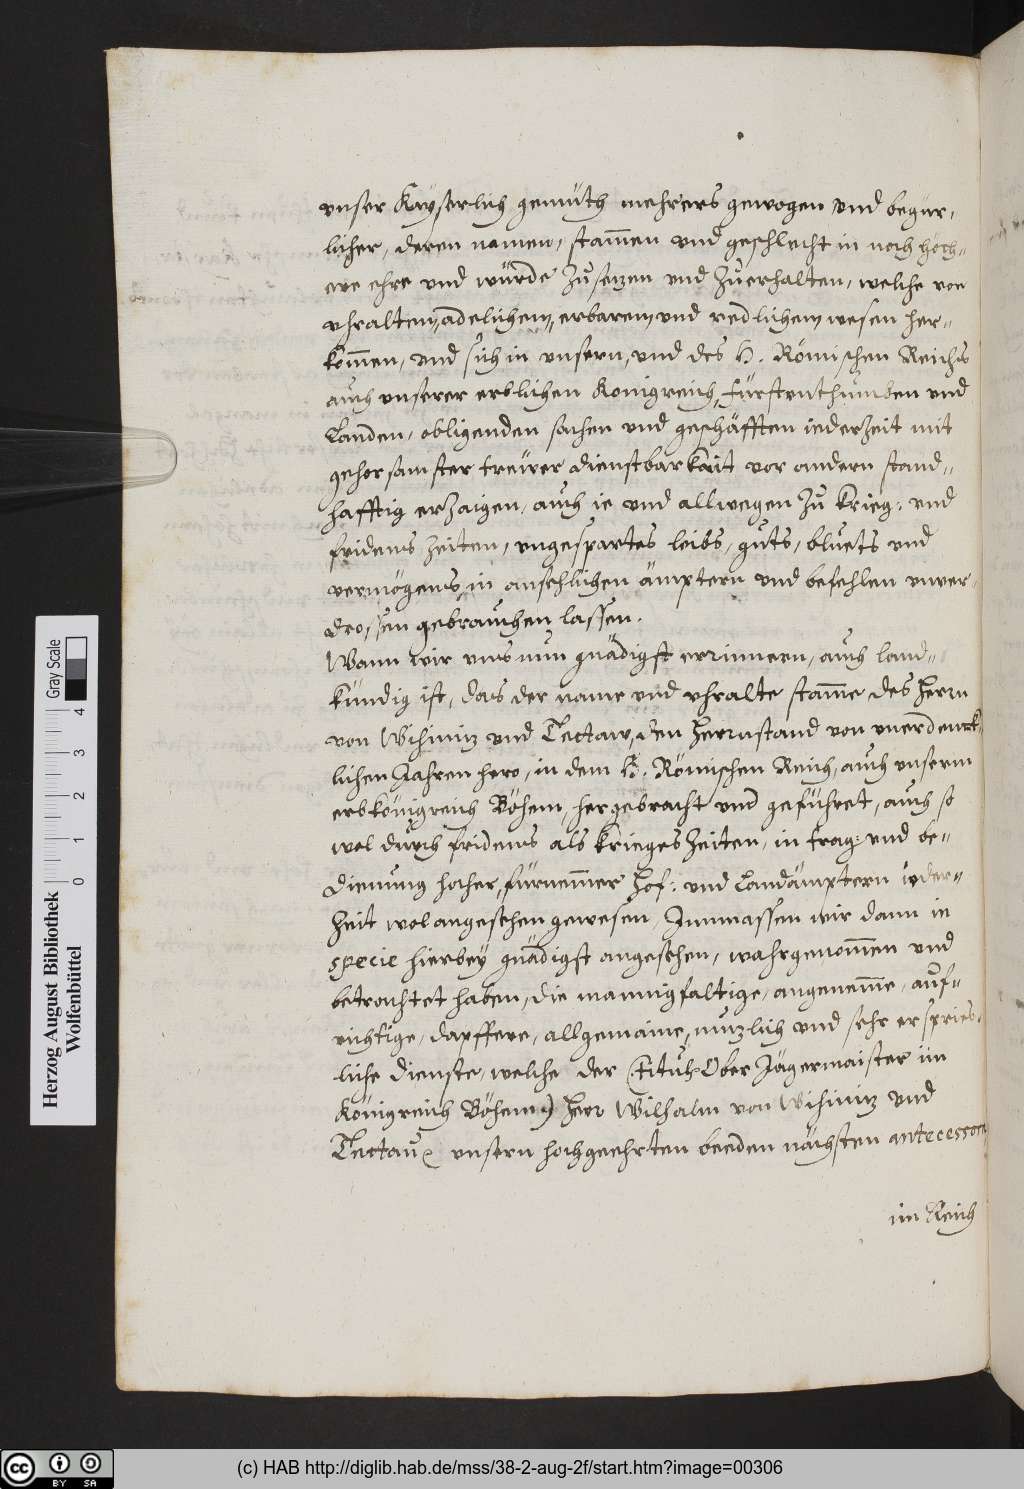 unser Kayserlich gemüth mehrers gewogen und begür,
licher, deren namen, stam̄en und geschlecht in noch höch-
ere ehre und würde zu setzen und zu erhalten, welche von
uhraltem, adelichem, erbarem, und redlichem wesen her-
kom̄en, und sich in unsern, und des H. Römischen Reichs
auch unserer erblichen Konigreich, Fürstenthumben und
Landen, obligenden sachen und geschäfften iederzeit mit
gehorsamster treüer dienstbarkait vor andern stand-
hafftig erzaigen, auch ie und allwegen zu krieg: und
fridens zeiten, ungespartes leibs, guts, bluets und
vermögens, in ansehlichen ämptern und befehlen unver-
drossen gebrauchen lassen.
Wann wir uns nun gnädigst erinnern, auch land-
kündig ist, das der name und uhralte stam̄e des Herrn
von Wchinitz und Tettaw, den Herrnstand von unerdenck-
lichen Jahren hero, in dem H. Römischen Reich, auch unserm
erbkönigreich Böhem, hergebracht und geführet, auch so
wol durch fridens als krieges zeiten, in trag: und be-
dienung hoher, fürnemmer Hof: und Landämptern ieder-
zeit wol angesehen gewesen, Inmassen wir dann in
specie hierbey gnädigst angesehen, wahrgenom̄en und
betrachtet haben, die mannigfaltige, angenem̄e, auf-
richtige, dapffere, allgemaine, nutzlich und sehr erspries-
liche dienste, welche der (Titul: Ober Jägermaister im
Königreich Böhem) Herr Wilhalm von Wchinitz und
Tettau unsern hochgeehrten beeden nächsten antecessorn
im Reich
Herzog August Bibliothek
Wolfenbüttel
Gray Scale
0 1 2 3 4
cc BY SA
(c) HAB http://diglib.hab.de/mss/38-2-aug-2f/start.htm?image=00306